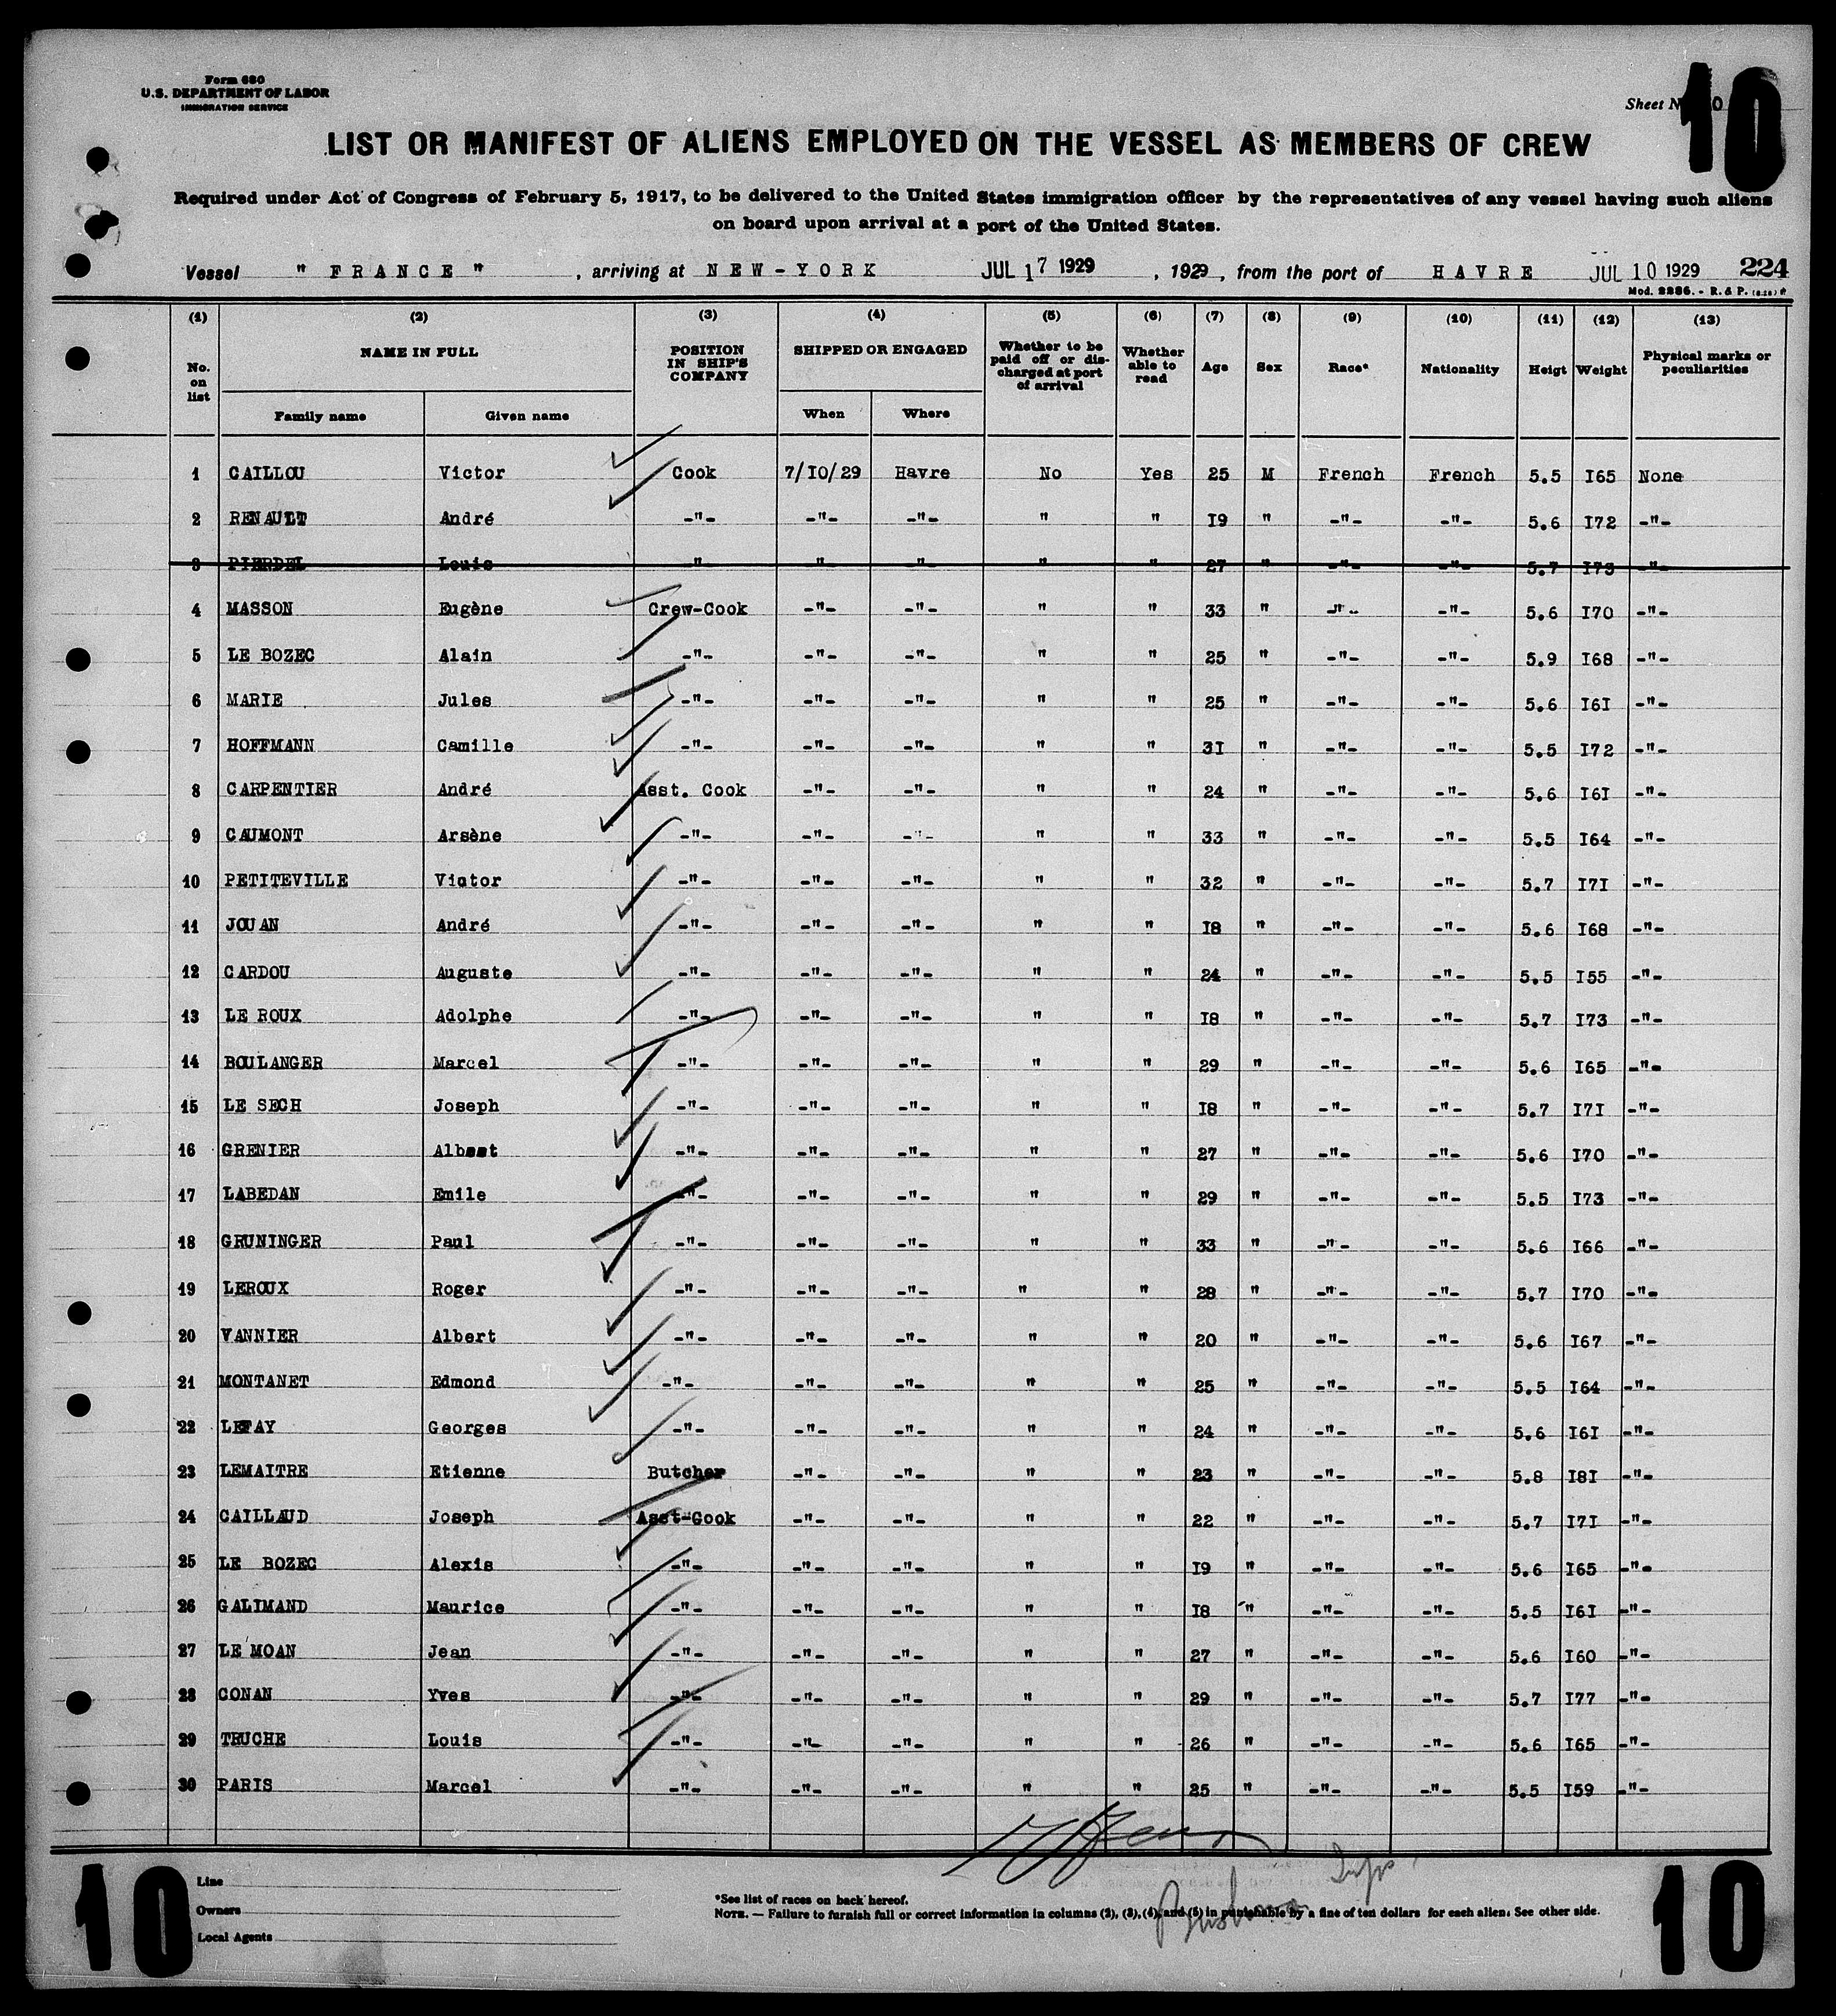 Form 680
U.S. DEPARTMENT OF LABOR
IMMIGRATION SERVICE
Sheet N 10
LIST OR MANIFEST OF ALIENS EMPLOYED ON THE VESSEL AS MEMBERS OF CREW
Required under Act of Congress of February 5, 1917, to be delivered to the United States immigration officer by the representatives of any vessel having such aliens
on board upon arrival at a port of the United States.
Vessel " FRANCE " , arriving at NEW-YORK JUL 17 1929 , 1929 , from the port of HAVRE JUL 10 1929 224
Mod. 2286. - R. & P.
(1) (2) (3) (4) (5) (6) (7) (8) (9) (10) (11) (12) (13)
No. on list NAME IN FULL POSITION IN SHIP'S COMPANY SHIPPED OR ENGAGED Whether to be paid off or discharged at port of arrival Whether able to read Age Sex Race* Nationality Heigt Weight Physical marks or peculiarities
Family name Given name When Where
1 CAILLOU Victor Cook 7/10/29 Havre No Yes 25 M French French 5.5 I65 None
2 RENAULT André -"- -"- -"- " " I9 " -"- -"- 5.6 I72 -"-
3 PIERDEL Louis " " " " " 27 " -"- -"- 5.7 I73 -"-
4 MASSON Eugène Crew-Cook -"- -"- " " 33 " -"- -"- 5.6 I70 -"-
5 LE BOZEC Alain -"- -"- -"- " " 25 " -"- -"- 5.9 I68 -"-
6 MARIE Jules -"- -"- -"- " " 25 " -"- -"- 5.6 I6I -"-
7 HOFFMANN Camille -"- -"- -"- " " 3I " -"- -"- 5.5 I72 -"-
8 CARPENTIER André Asst. Cook -"- -"- " " 24 " -"- -"- 5.6 I6I -"-
9 CAUMONT Arsène -"- -"- -"- " " 33 " -"- -"- 5.5 I64 -"-
10 PETITEVILLE Victor -"- -"- -"- " " 32 " -"- -"- 5.7 I7I -"-
11 JOUAN André -"- -"- -"- " " I8 " -"- -"- 5.6 I68 -"-
12 CARDOU Auguste -"- -"- -"- " " 24 " -"- -"- 5.5 I55 -"-
13 LE ROUX Adolphe -"- -"- -"- " " I8 " -"- -"- 5.7 I73 -"-
14 BOULANGER Marcel -"- -"- -"- " " 29 " -"- -"- 5.6 I65 -"-
15 LE SECH Joseph -"- -"- -"- " " I8 " -"- -"- 5.7 I7I -"-
16 GRENIER Albert -"- -"- -"- " " 27 " -"- -"- 5.6 I70 -"-
17 LABEDAN Emile -"- -"- -"- " " 29 " -"- -"- 5.5 I73 -"-
18 GRUNINGER Paul -"- -"- -"- " " 33 " -"- -"- 5.6 I66 -"-
19 LEROUX Roger -"- -"- -"- " " 28 " -"- -"- 5.7 I70 -"-
20 VANNIER Albert -"- -"- -"- " " 20 " -"- -"- 5.6 I67 -"-
21 MONTANET Edmond -"- -"- -"- " " 25 " -"- -"- 5.5 I64 -"-
22 LEFAY Georges -"- -"- -"- " " 24 " -"- -"- 5.6 I6I -"-
23 LEMAITRE Etienne Butcher -"- -"- " " 23 " -"- -"- 5.8 I8I -"-
24 CAILLAUD Joseph Asst-Cook -"- -"- " " 22 " -"- -"- 5.7 I7I -"-
25 LE BOZEC Alexis -"- -"- -"- " " I9 " -"- -"- 5.6 I65 -"-
26 GALIMAND Maurice -"- -"- -"- " " I8 " -"- -"- 5.5 I6I -"-
27 LE MOAN Jean -"- -"- -"- " " 27 " -"- -"- 5.6 I60 -"-
28 CONAN Yves -"- -"- -"- " " 29 " -"- -"- 5.7 I77 -"-
29 TRUCHE Louis -"- -"- -"- " " 26 " -"- -"- 5.6 I65 -"-
30 PARIS Marcel -"- -"- -"- " " 25 " -"- -"- 5.5 I59 -"-
10 10
Line
Owners
Local Agents
*See list of races on back hereof.
NOTE. — Failure to furnish full or correct information in columns (2), (3), (4) and (5) in punishable by a fine of ten dollars for each alien. See other side.